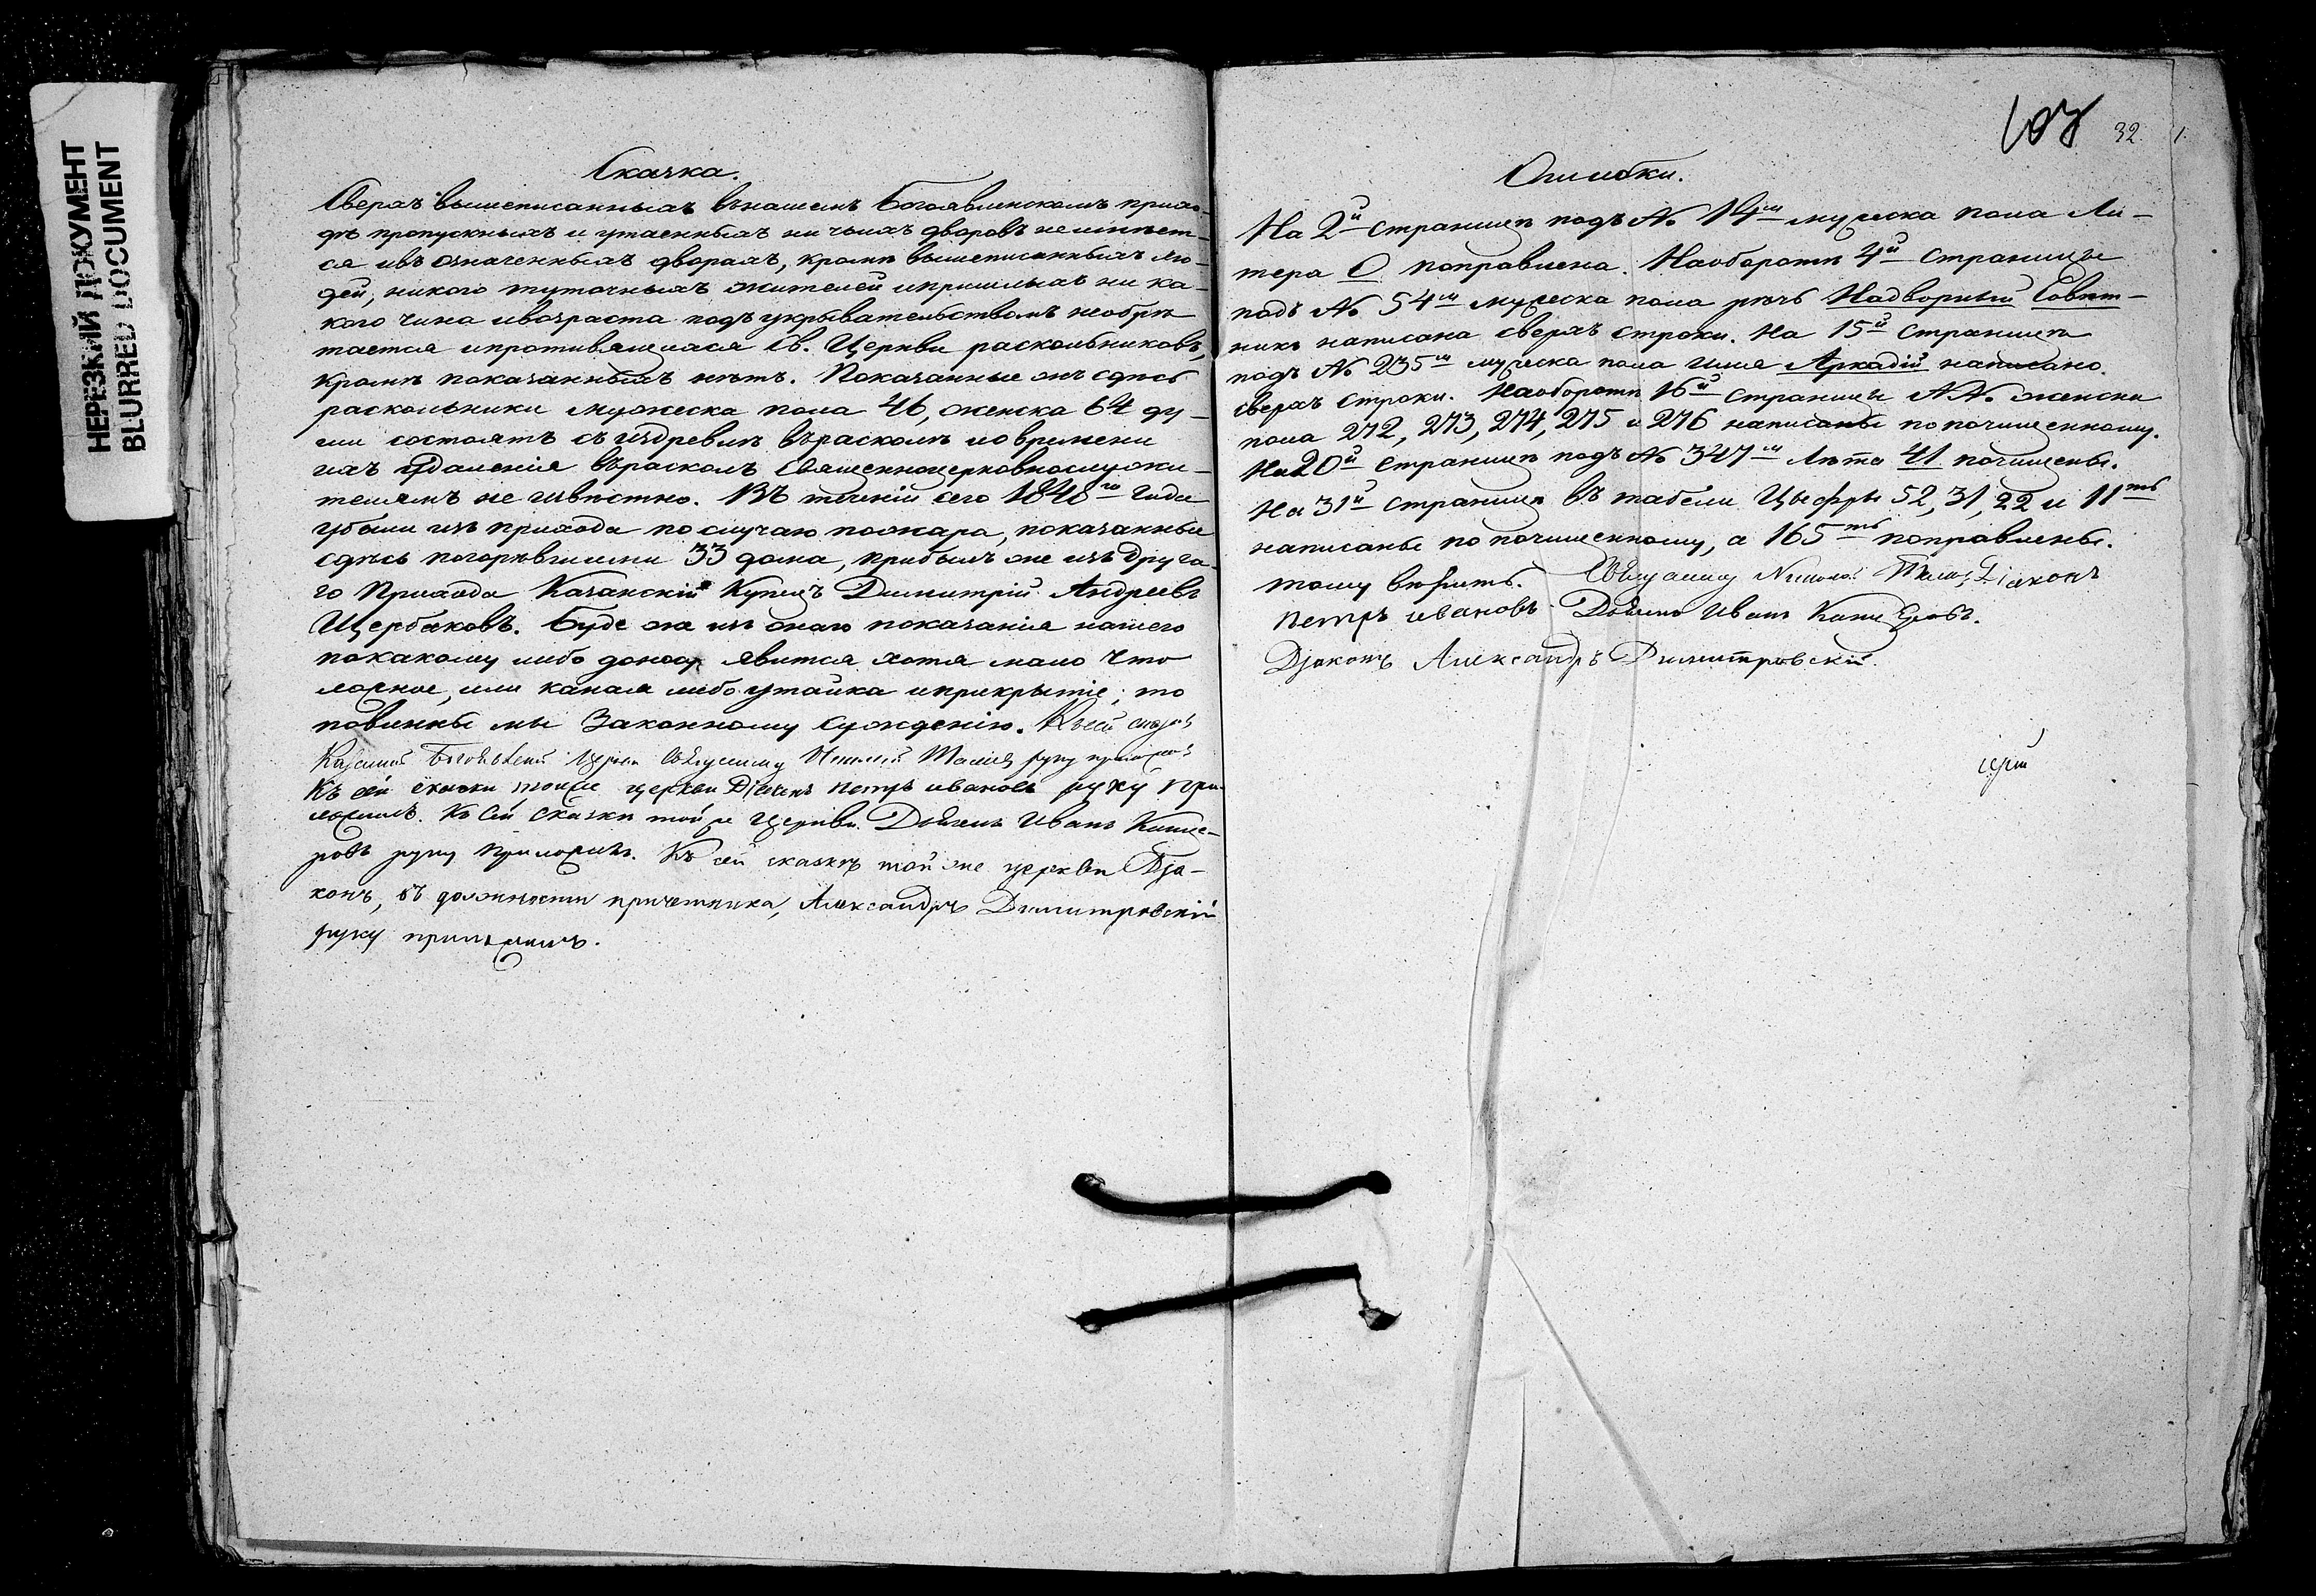 НЕРЕЗКИЙ ДОКУМЕНТ
BLURRED DOCUMENT
Сказка.
Сверхъ вышеписанныхъ въ нашемъ Богоявленскомъ прихо-
дѣ пропускныхъ и утаенныхъ ни чьихъ дворовъ не имѣет-
ся и въ означенныхъ дворахъ, кромѣ вышеписанныхъ лю-
дей, никого туточныхъ жителей и пришлыхъ ни ка-
кого чина и возраста подъ укрывательствомъ необрѣ
тается и противящихся Св. Церкви раскольниковъ,
кромѣ показанныхъ нѣтъ. Показанные жъ сдѣсь
раскольники мужеска пола 46, женска 64 ду-
ши состоятъ съ издревлѣ въ расколѣ и о времени
ихъ удаленія въ расколъ священноцерковнослужи-
телямъ не извѣстно. Въ теченіи сего 1848го года
убыли изъ прихода по случаю пожара, показанные
сдѣсь погорѣвшими 33 дома, прибылъ же изъ друга-
го Прихода Казанскій Купецъ Димитрій Андреевъ
Щербаковъ. Буде же изъ онаго показанія нашего
по какому либо доносу явится хотя мало что
ложное, или какая либо утайка и прикрытіе; то
повинны мы Законному сужденію. Къ сей сказкѣ
Казанской Богоявленской Церкви Священникъ руку приложилъ
Къ сей сказки тойже церкви Діаконъ Петръ Ивановъ руку при-
ложилъ. Къ сей Сказки той же Церкви Дьячекъ Иванъ
руку приложилъ. Къ сей сказкѣ той же церкви Дїа-
конъ, въ должности причетника, Александръ Димитровскій
руку приложилъ.
107 32
Ошибки.
На 2й страницѣ подъ № 14м мужеска пола Ли-
тера О поправлена. На оборотѣ 4й страницы
подъ № 54м мужеска пола рѣчь Надворный Совѣт-
никъ написана сверхъ строки. На 15й страницѣ
подъ № 235м мужеска пола имя Аркадій написано
сверхъ строки. На оборотѣ 16й страницы №№ женска
пола 272, 273, 274, 275 и 276 написаны по почищенному.
На 20й страницѣ подъ № 347м Лѣта 41 почищены.
На 31й страницѣ въ табели Цыфры 52, 31, 22 и 11ть
написаны по почищенному, а 165ть поправлены.
тому вѣрить. Священникъ Діаконъ
Петръ Ивановъ. Дьячекъ Иванъ
Дїаконъ Александръ Димитровскій.